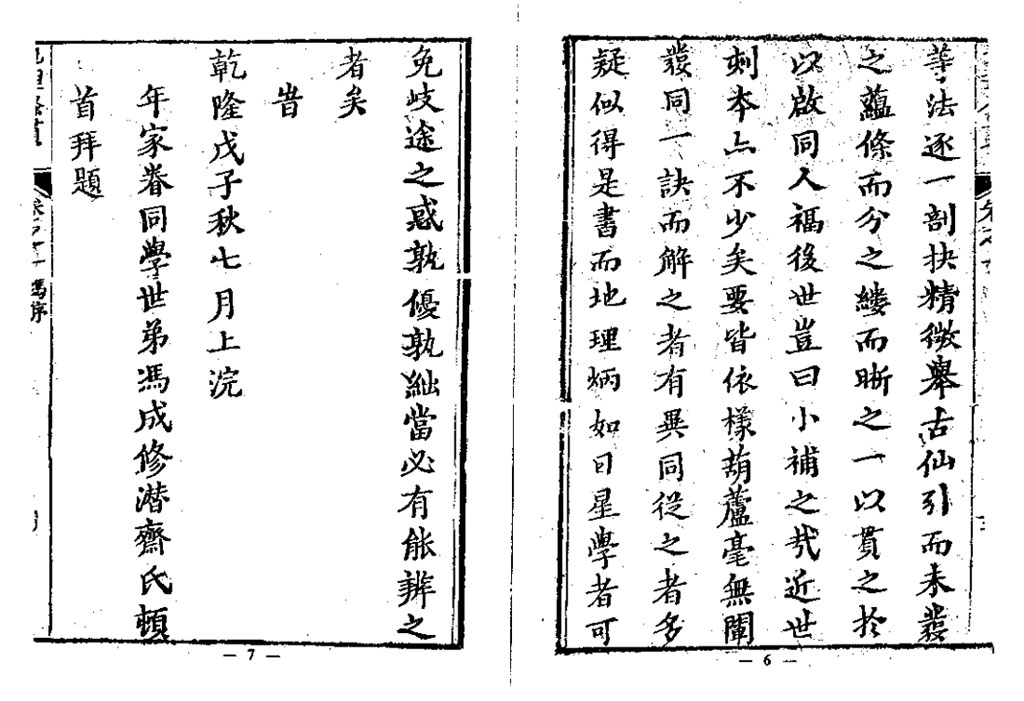 等法逐一剖抉精微舉古仙引而未發
之蘊條而分之縷而晰之一以貫之於
以啟同人福後世豈曰小補之哉近世
刺本亦不少矣要皆依樣葫蘆毫無闡
發同一訣而解之者有異同從之者多
疑似得是書而地理炳如日星學者可
— 6 —
免岐途之惑孰優孰絀當必有能辨之
者矣
旹
乾隆戊子秋七月上浣
年家眷同學世弟馮成修潛齋氏頓
首拜題
馮序
— 7 —